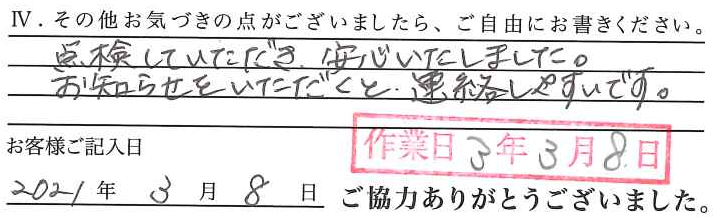 Ⅳ．その他お気づきの点がございましたら、ご自由にお書きください。
点検していただき、安心いたしました。
お知らせをいただくと、連絡しやすいです。
お客様ご記入日
作業日 3年3月8日
2021年 3月 8日 ご協力ありがとうございました。